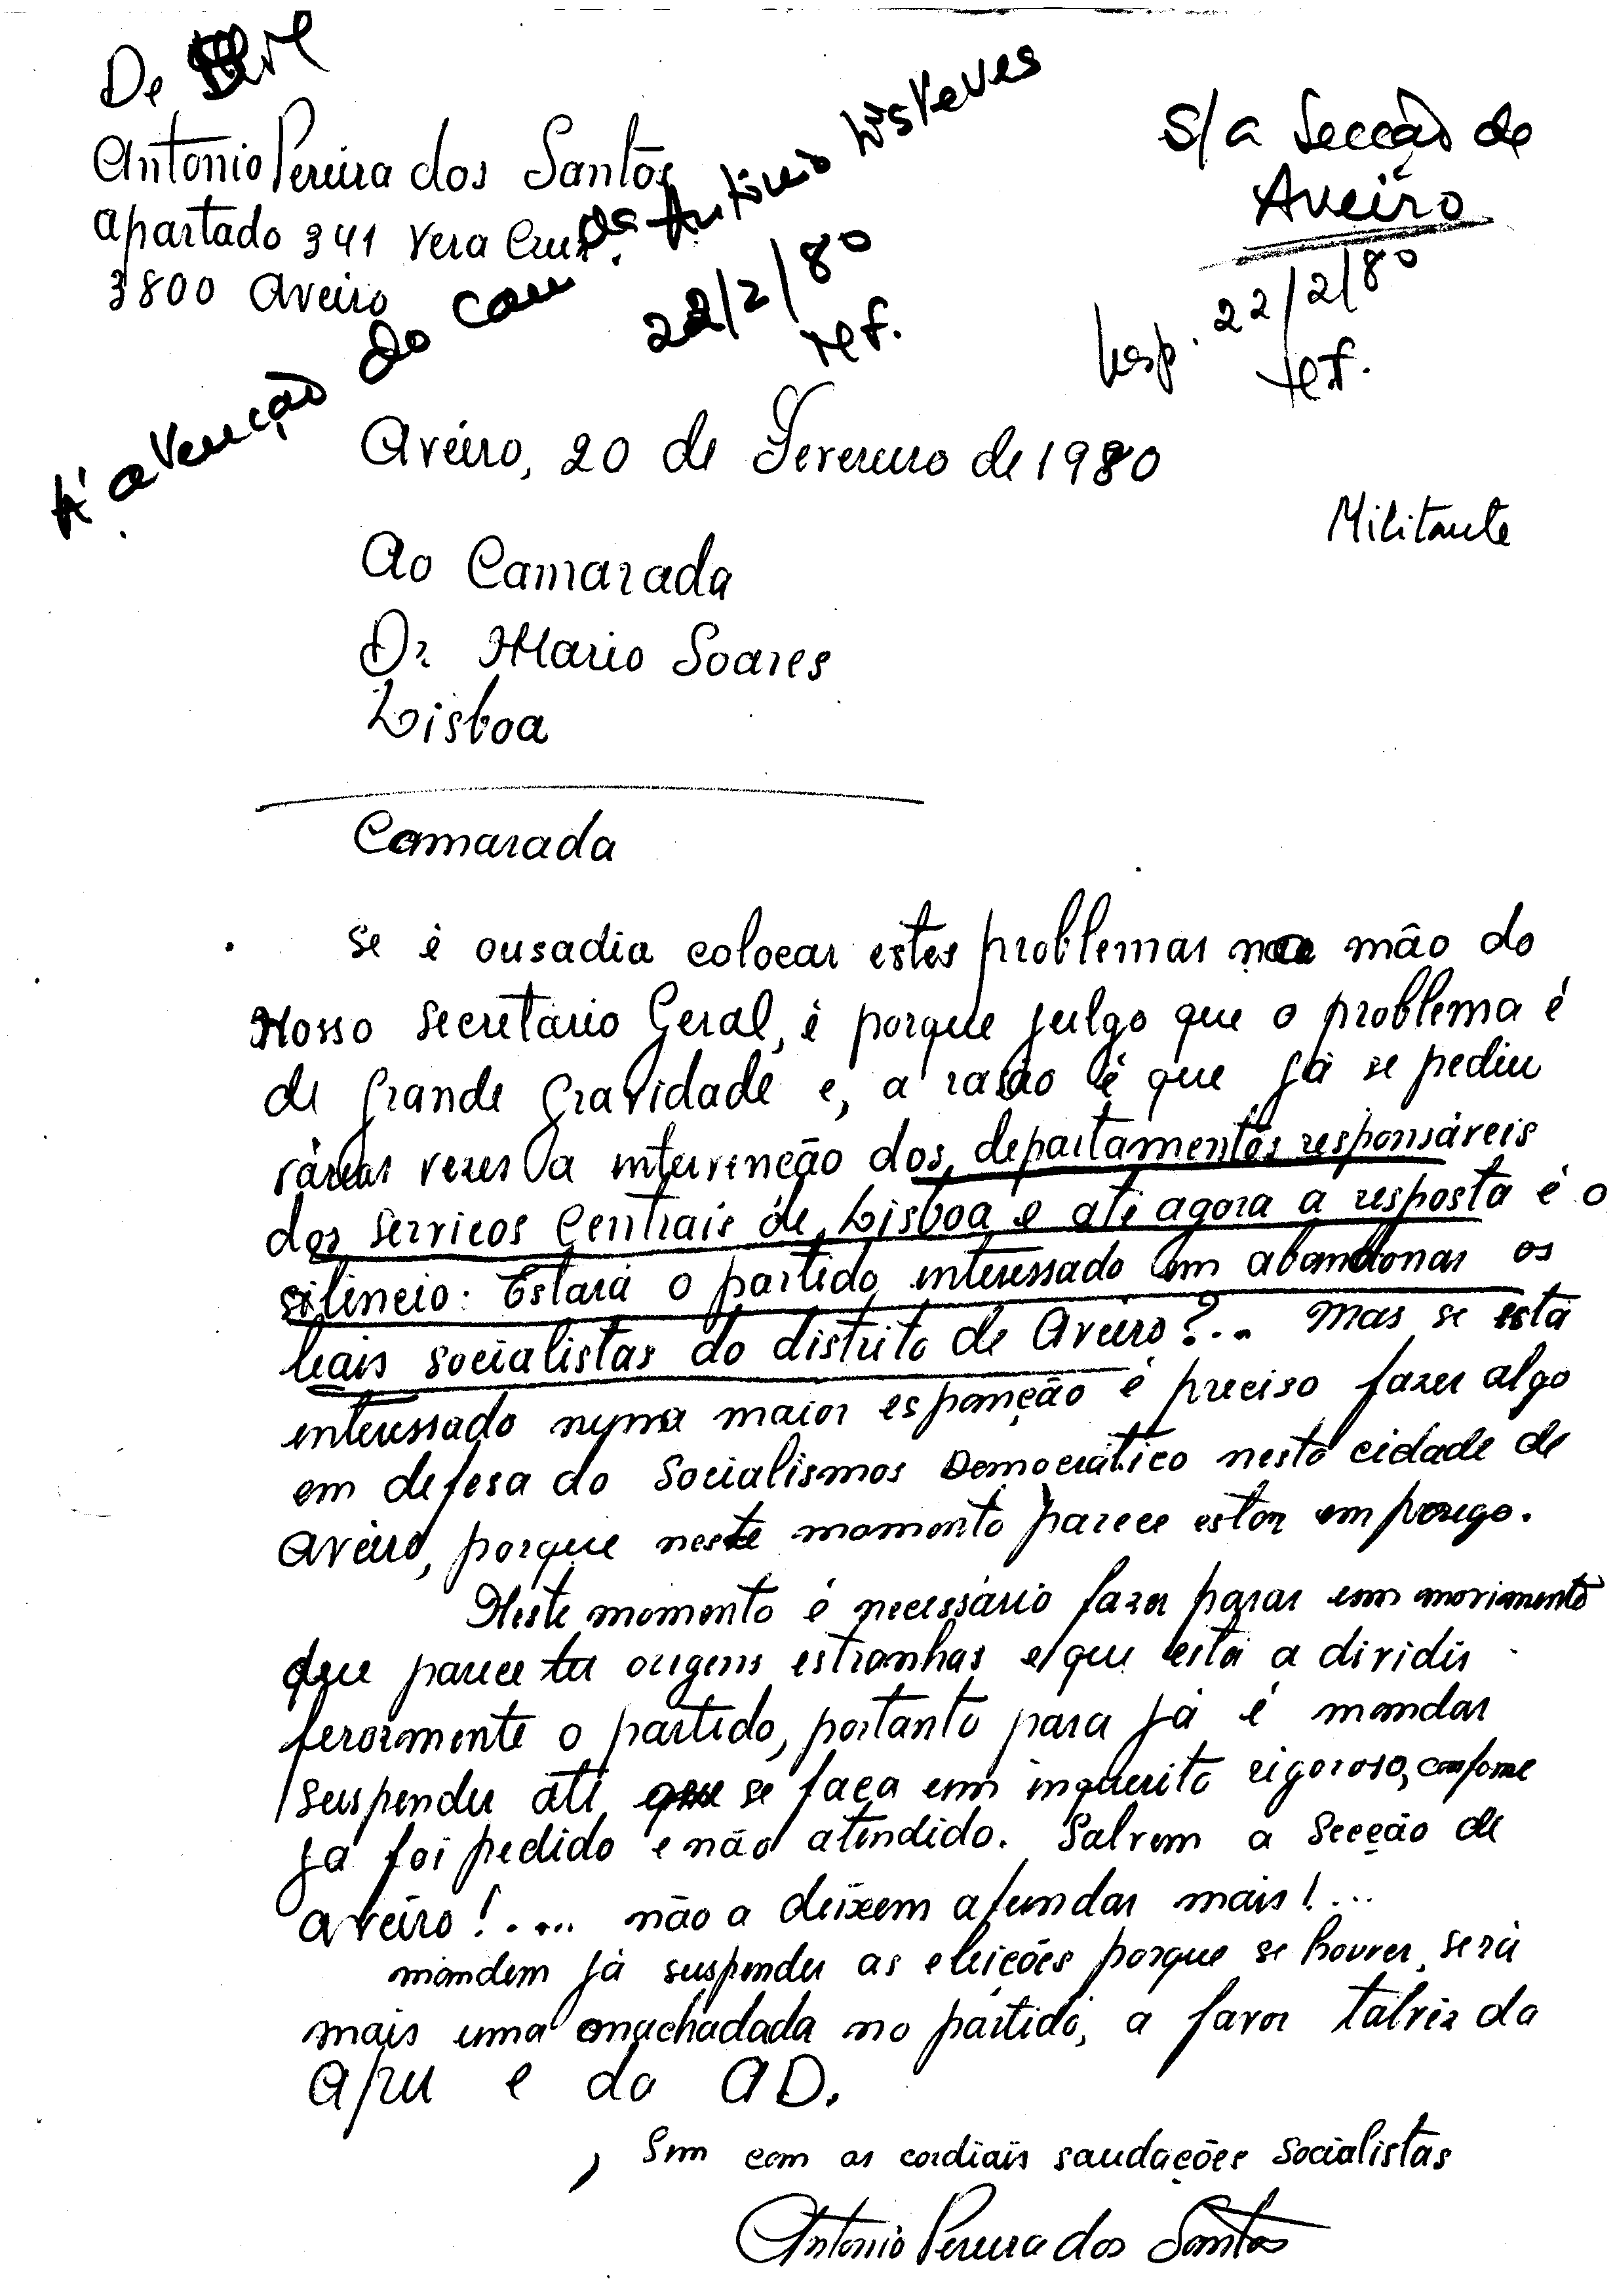 De
Antonio Pereira dos Santos
apartado 341 Vera Cruz
3800 Aveiro
À atenção do Cam da António Esteves
22/2/80
ref.
S/a Secção de
Aveiro
Resp. 22/2/80
ref.
Aveiro, 20 de Fevereiro de 1980
Militante
Ao Camarada
Dr Mario Soares
Lisboa
Camarada
se é ousadia colocar estes problemas na mão do
Nosso Secretário Geral, é porque julgo que o problema é
de grande gravidade e, a rasão é que já se pediu
várias vezes a intervenção dos departamentos responsáveis
dos Serviços Centrais de Lisboa e até agora a resposta é o
silêncio. Estará o partido interessado em abandonar os
leais socialistas do distrito de Aveiro?.. mas se está
interessado numa maior espanção é preciso fazer algo
em defesa do Socialismos Democrático nesta cidade de
Aveiro, porque neste momento parece estar em perigo.
Neste momento é necessário fazer parar um movimento
que parece ter origens estranhas e que está a dividir
ferozmente o partido, portanto para já é mandar
suspender até que se faça um inquerito rigoroso, confome
já foi pedido e não atendido. Salvem a Secção de
Aveiro!.... não a deixem afundar mais!...
mandem já suspender as eleições porque se houver, será
mais uma machadada no partido, a favor talvez da
Apu e da AD.
Sem com as cordiais saudações Socialistas
Antonio Pereira dos Santos